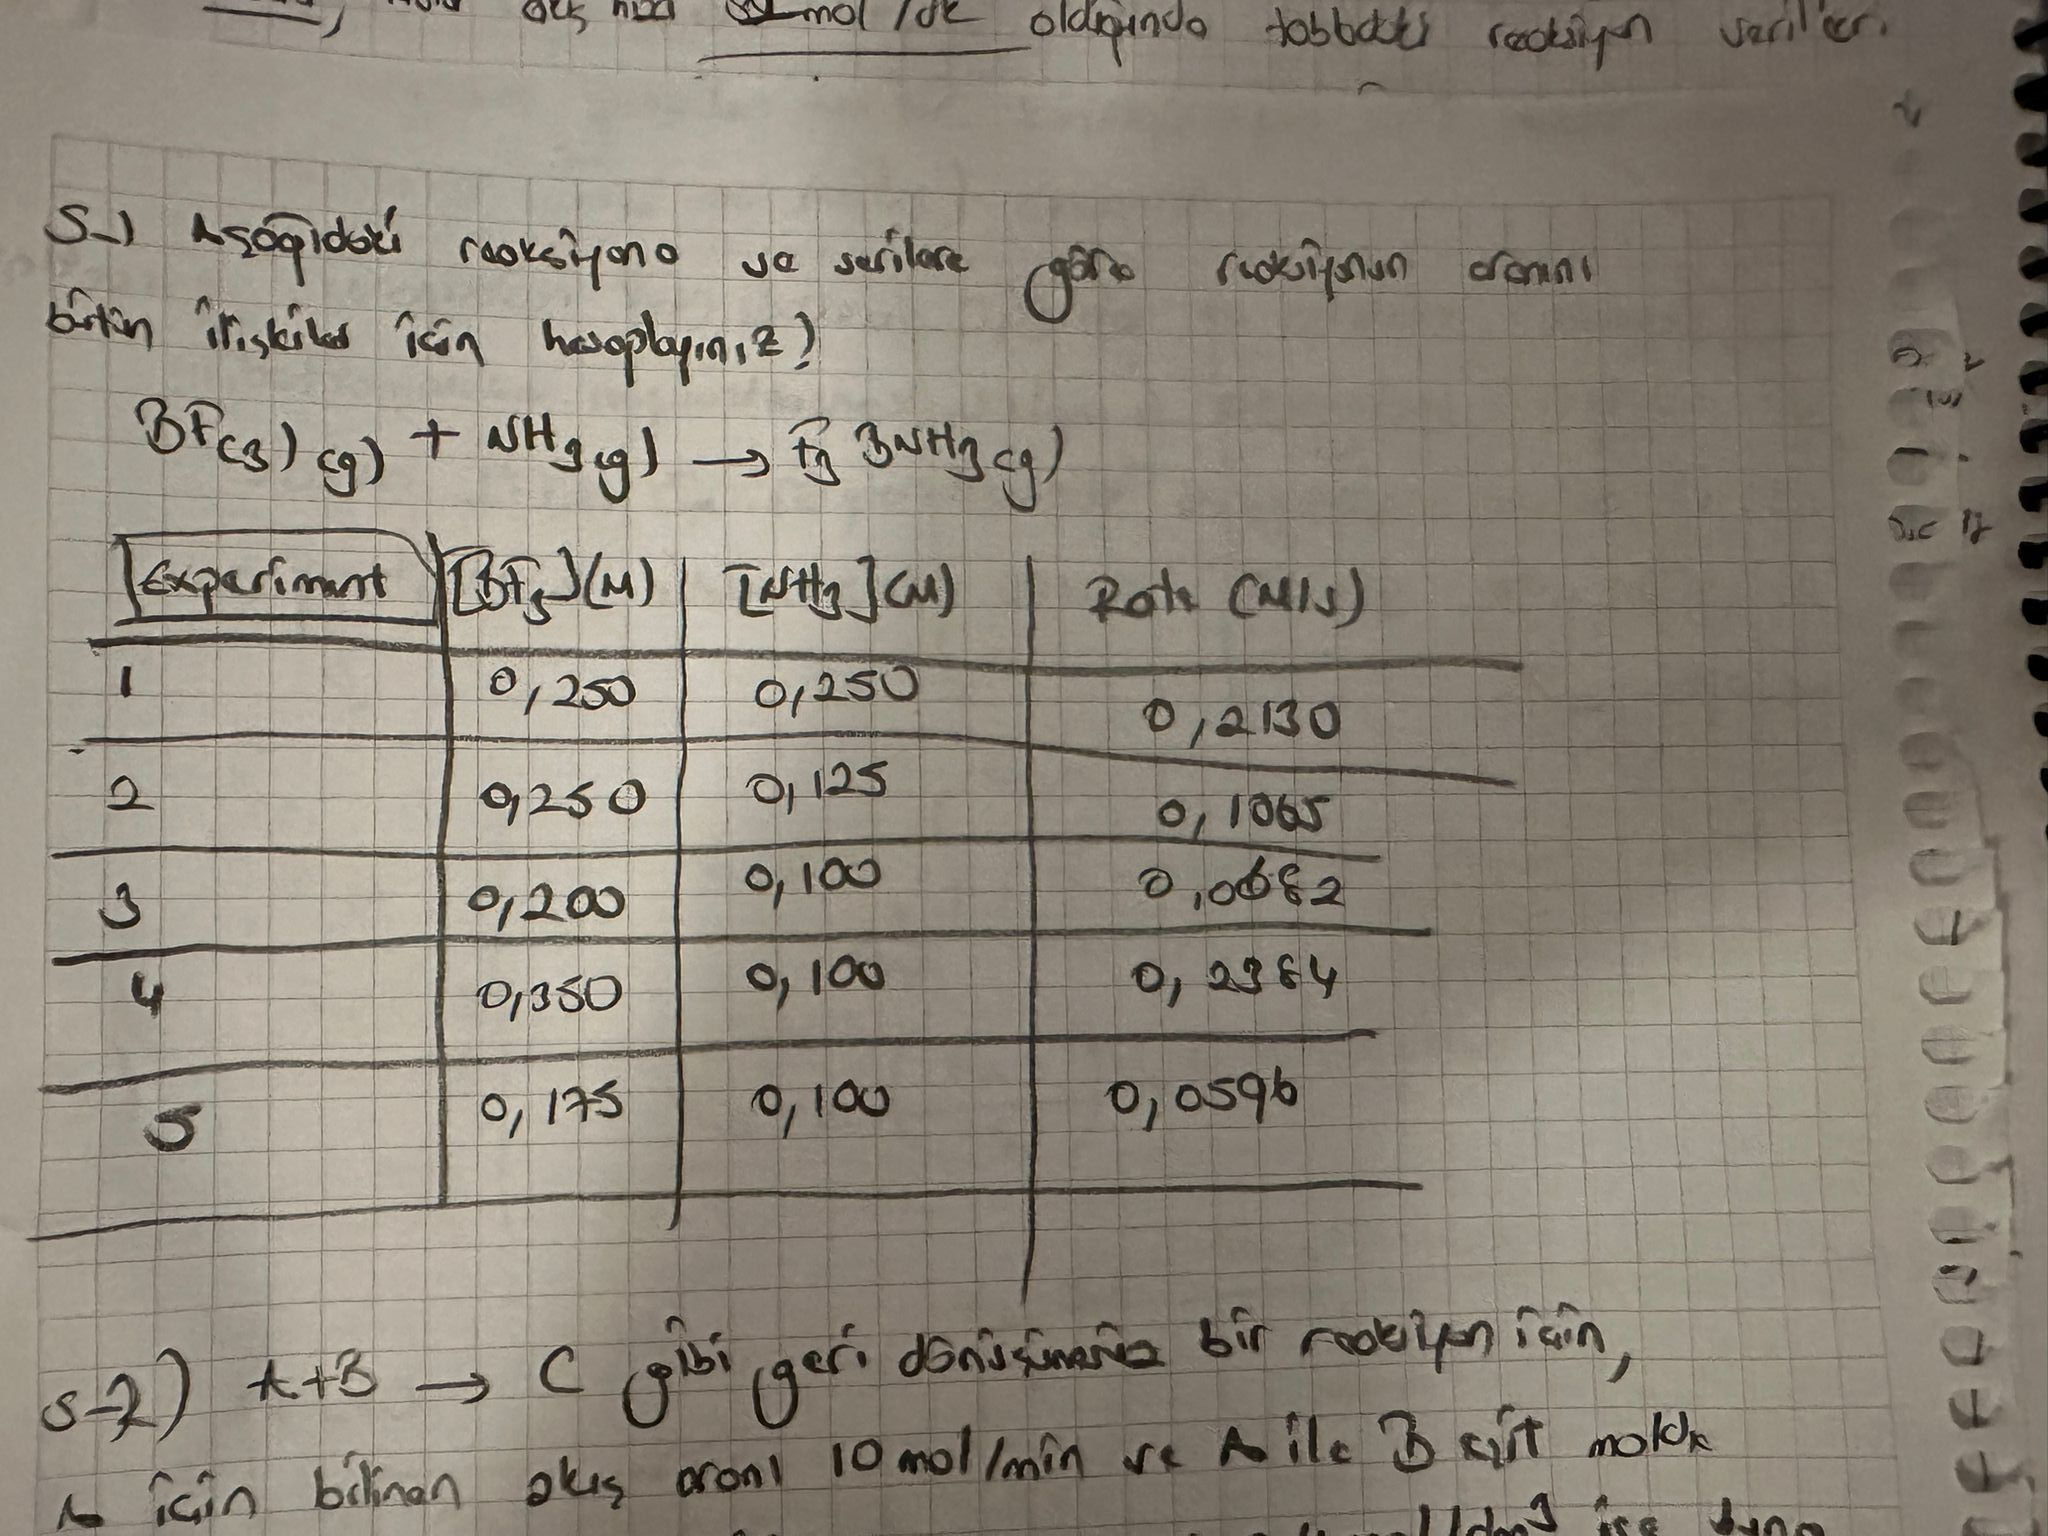 mol/dk olduğunda tablodaki reaksiyon verileri
S-) Aşağıdaki reaksiyona ve verilere göre reaksiyonun oranını
bütün ilişkiler için hesaplayınız?
BF(3)(g) + NH3(g) → F3BNH3(g)
Experiment [BF3](M) [NH3](M) Rate (M/s)
1 0,250 0,250 0,2130
2 0,250 0,125 0,1065
3 0,200 0,100 0,0682
4 0,350 0,100 0,2384
5 0,175 0,100 0,0596
S-2) A+B → C gibi geri dönüşümsüz bir reaksiyon için,
A için bilinen akış oranı 10 mol/min ve A ile B eşit molde
ise